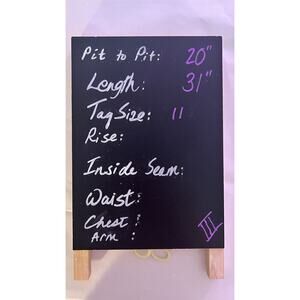 Pit to Pit: 20"
Length: 31"
Tag Size: 11
Rise:
Inside Seam:
Waist:
Chest:
Arm:
III